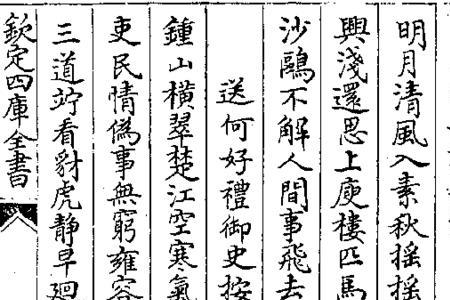 明月清風入素秋揺揺
興淺還思上庾樓匹馬
沙鷗不解人間事飛去
送何好禮御史按
鍾山橫翠楚江空寒氣
吏民情偽事無窮雍容
三道竚看豺虎靜早廻
欽定四庫全書